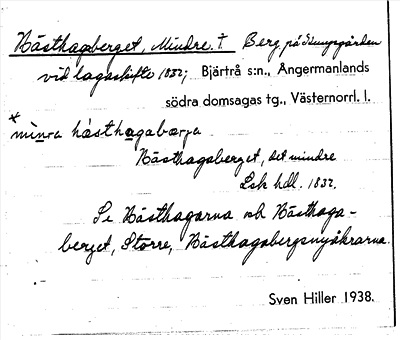 Hästhagsberget, Mindre. † Berg på Klumpgården
vid lagaskifte 1832; Bjärtrå s:n., Ångermanlands
södra domsagas tg., Västernorrl. l.
* minra hästhagabærja
Hästhagsberget, det mindre
Lsk hdl. 1832.
Se Hästhagarna och Hästhags-
berget, Större, Hästhagsbergsnyåkrarna.
Sven Hiller 1938.